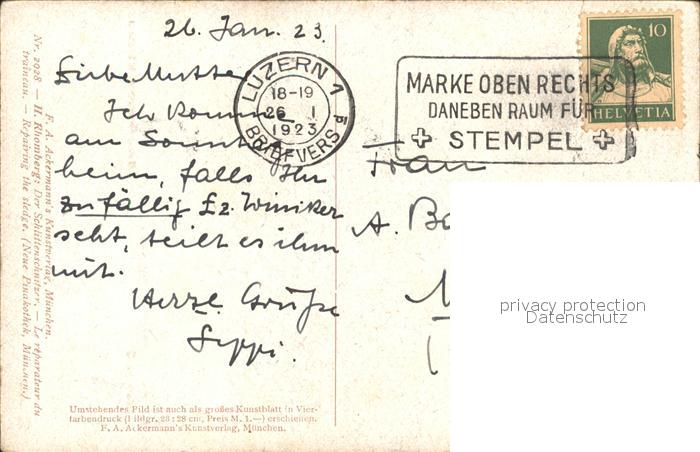 26. Jan. 23.
Liebe Mutter
Ich komme
am Sonntag
heim, falls Ihr
zufällig Lz. Winiker
seht, teilt es ihm
mit.
Herzl. Grüsse
Seppi.
LUZERN 1
18-19
26 I
1923
BRIEFVERS.
MARKE OBEN RECHTS
DANEBEN RAUM FÜR
STEMPEL
10
HELVETIA
Frau
A.
privacy protection
Datenschutz
F. A. Ackermann's Kunstverlag, München.
Nr. 2028 — H. Rhomberg: Der Schlittenschnitzer. — Le réparateur du
traineau. — Repairing the sledge. (Neue Pinakothek, München.)
Umstehendes Bild ist auch als großes Kunstblatt in Vier-
farbendruck (Bildgr. 28 : 28 cm, Preis M. 1.—) erschienen.
F. A. Ackermann's Kunstverlag, München.